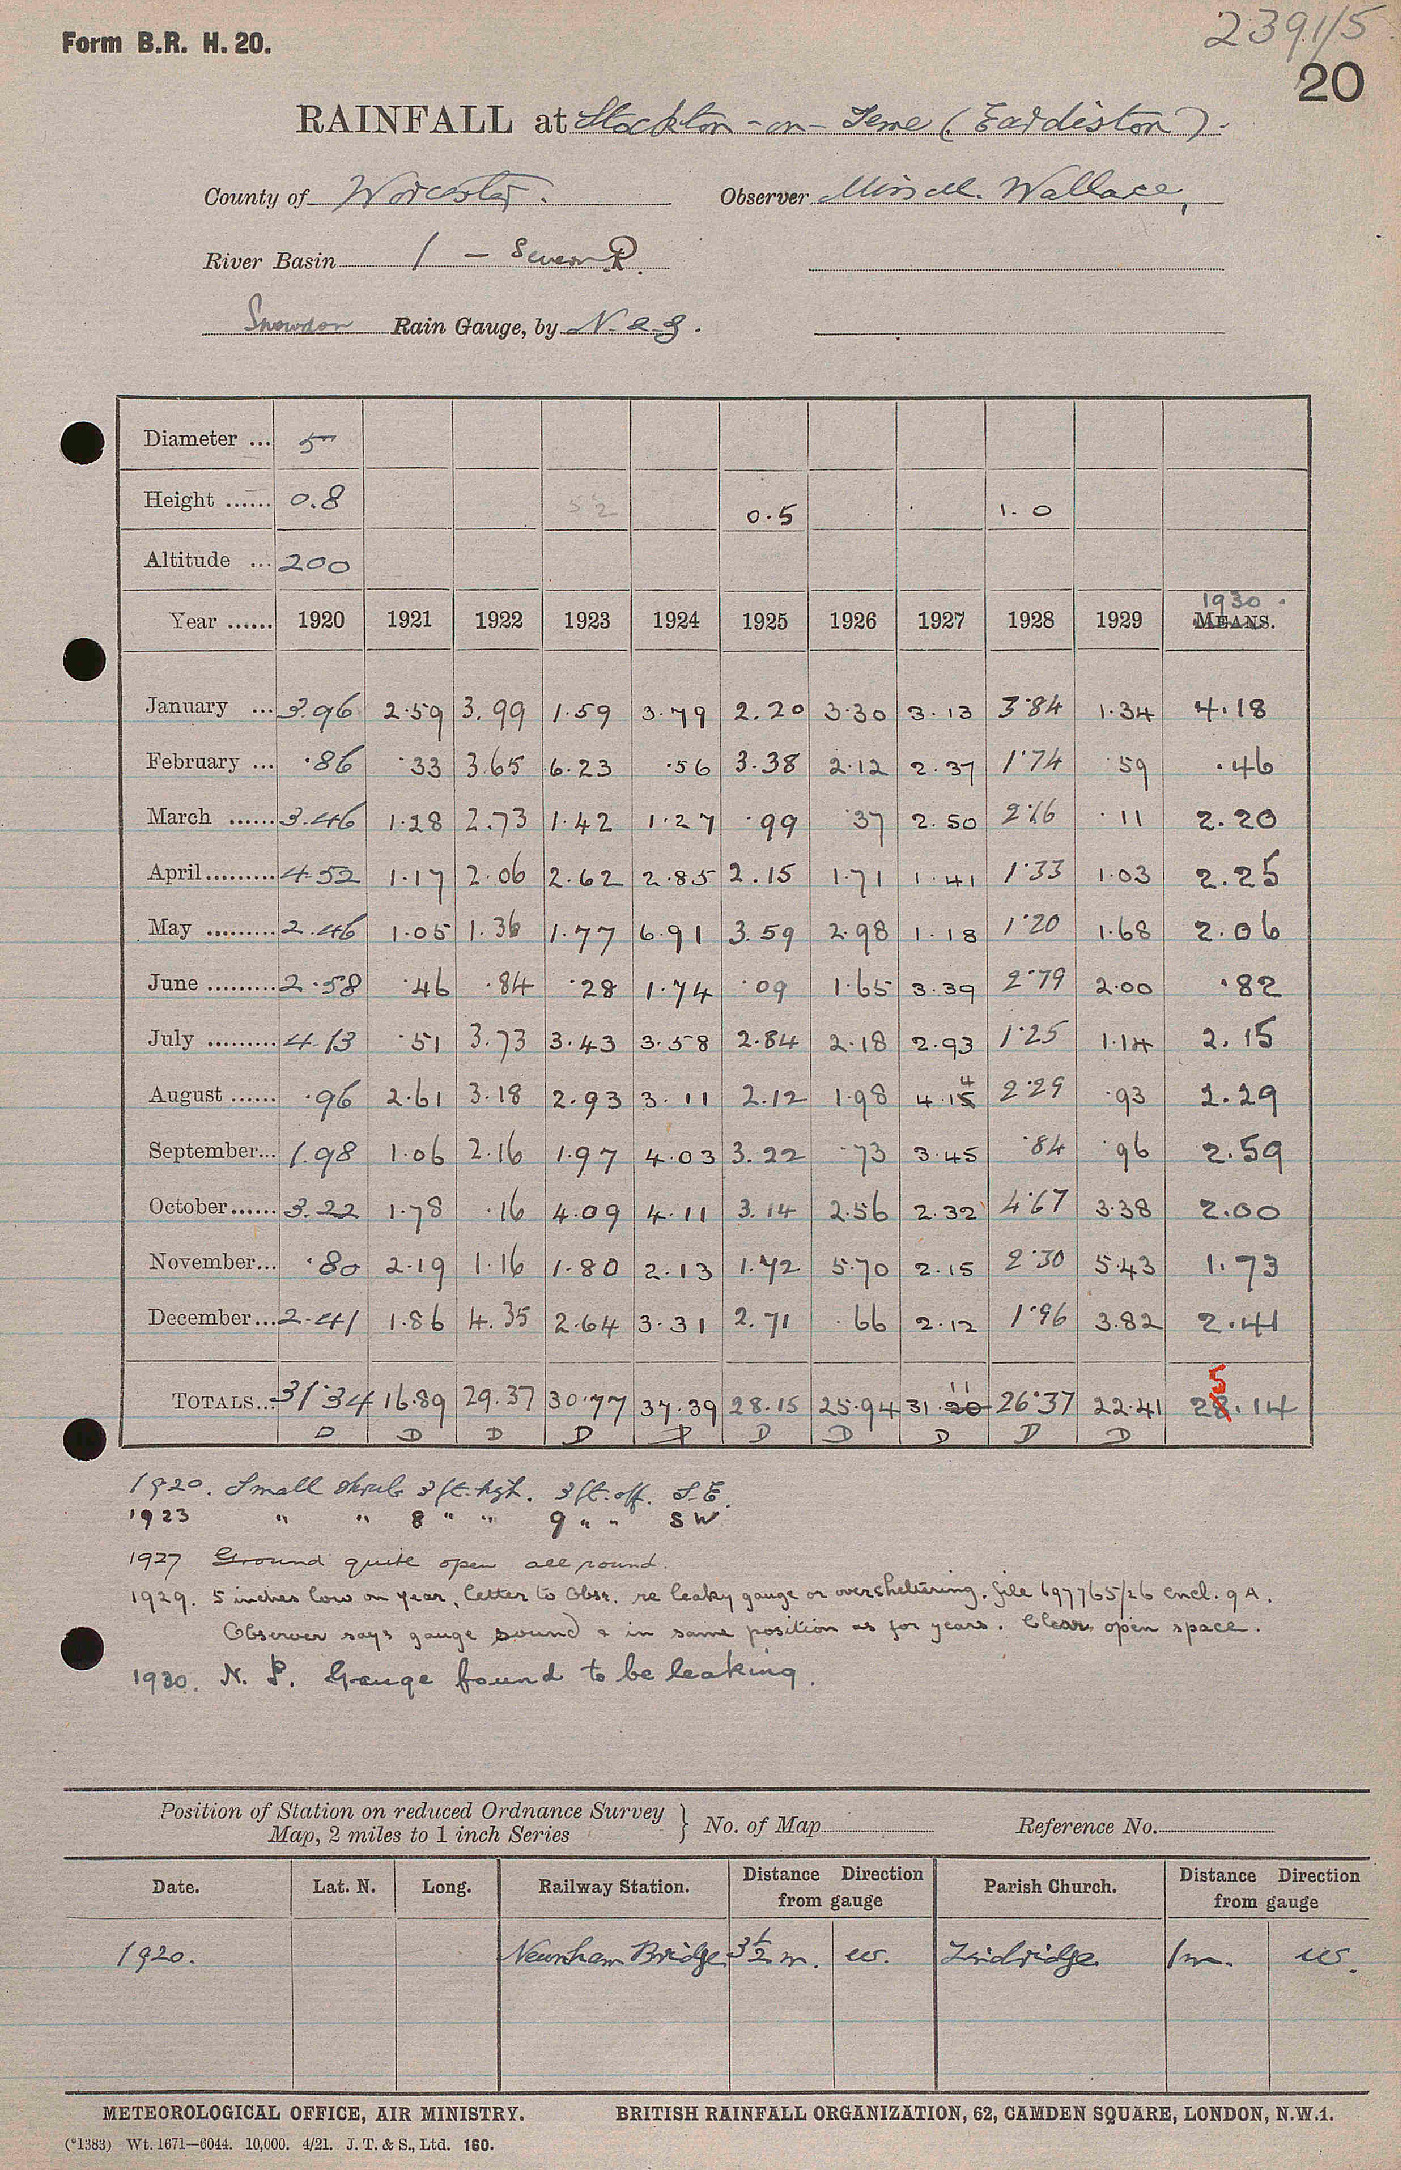 2391/5
Form B.R. H. 20.
20
RAINFALL at Stockton-on-Teme (Eardiston).
County of Worcester. Observer Miss M. Wallace,
River Basin 1 - Severn R.
Snowdon Rain Gauge, by N. & Z.
Diameter ... 5
Height ...... 0.8 0.5 1.0
Altitude ... 200
1930
Year ...... 1920 1921 1922 1923 1924 1925 1926 1927 1928 1929 MEANS.
January ... 3.96 2.59 3.99 1.59 3.79 2.20 3.30 3.13 3.84 1.34 4.18
February ... .86 .33 3.65 6.23 .56 3.38 2.12 2.37 1.74 .59 .46
March ...... 3.46 1.28 2.73 1.42 1.27 .99 .37 2.50 2.16 .11 2.20
April ......... 4.52 1.17 2.06 2.62 2.85 2.15 1.71 1.41 1.33 1.03 2.25
May ......... 2.46 1.05 1.36 1.77 6.91 3.59 2.98 1.18 1.20 1.68 2.06
June ......... 2.58 .46 .84 .28 1.74 .09 1.65 3.39 2.79 2.00 .82
July ......... 4.13 .51 3.73 3.43 3.58 2.84 2.18 2.93 1.25 1.14 2.15
4
August ...... .96 2.61 3.18 2.93 3.11 2.12 1.98 4.15 2.29 .93 2.29
September... 1.98 1.06 2.16 1.97 4.03 3.22 .73 3.45 .84 .96 2.59
October...... 3.22 1.78 .16 4.09 4.11 3.14 2.56 2.32 4.67 3.38 2.00
November... .80 2.19 1.16 1.80 2.13 1.42 5.70 2.15 2.30 5.43 1.73
December... 2.41 1.86 4.35 2.64 3.31 2.71 .66 2.12 1.96 3.82 2.41
11 5
TOTALS... 31.34 16.89 29.37 30.77 37.39 28.15 25.94 31.20 26.37 22.41 28.14
D D D D D D D D D D
1920. Small shrub 3 ft. high. 3 ft. off. S.E.
1923 " " 8 " " 9 " " SW
1927 Ground quite open all round.
1929. 5 inches low on year, letter to Obsr. re leaky gauge or oversheltering. file 697765/26 encl. 9A.
Observer says gauge sound & in same position as for years. Clear, open space.
1930. N. P. Gauge found to be leaking.
Position of Station on reduced Ordnance Survey
Map, 2 miles to 1 inch Series } No. of Map Reference No.
Date. Lat. N. Long. Railway Station. Distance Direction from gauge Parish Church. Distance Direction from gauge
1920. Newnham Bridge 3½ m. W. Lindridge 1 m. W.
METEOROLOGICAL OFFICE, AIR MINISTRY. BRITISH RAINFALL ORGANIZATION, 62, CAMDEN SQUARE, LONDON, N.W.1.
(*1383) Wt. 1671—6044. 10,000. 4/21. J. T. & S., Ltd. 160.